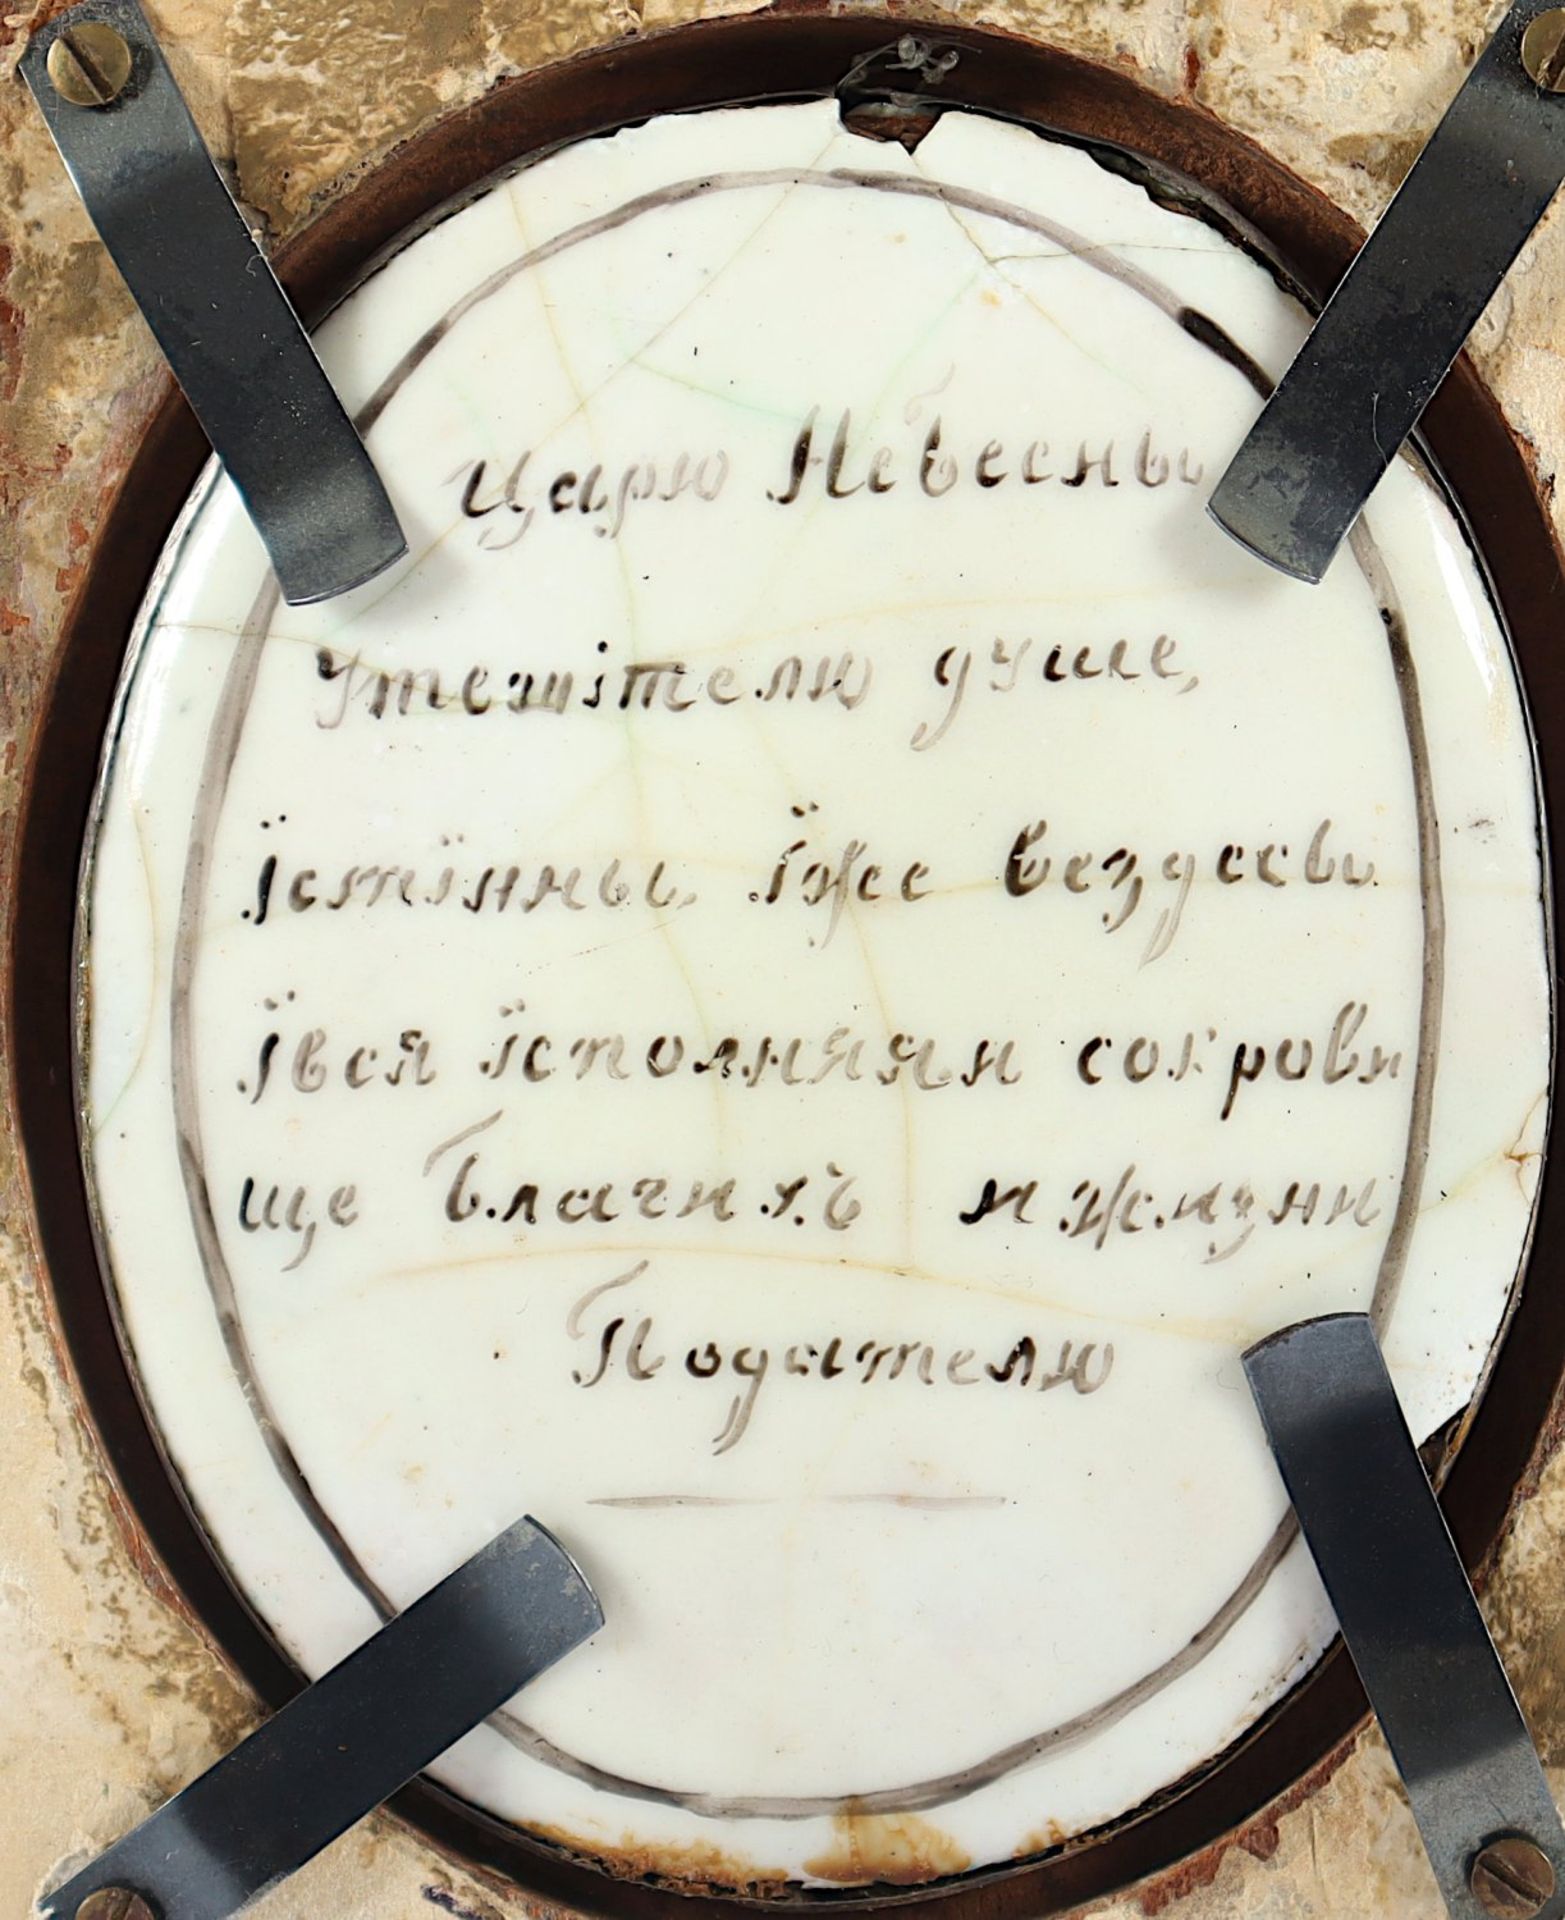 Царю Небесны
Утешітелю душе,
Їстїнны. Їже вездесы
Ївся Їсполняяи сокрови
ще Благихъ и жизни
Подителю